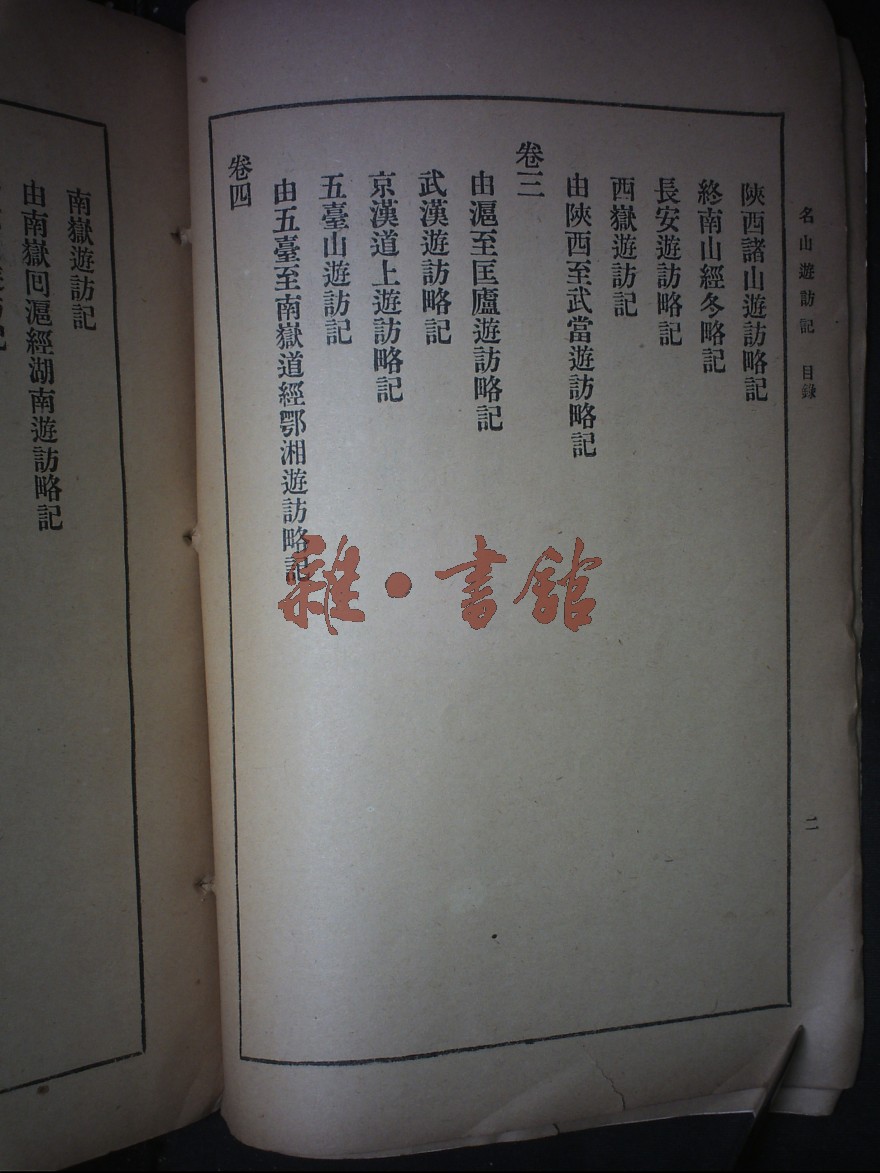 名山遊訪記 目錄
二
陝西諸山遊訪略記
終南山經冬略記
長安遊訪略記
西嶽遊訪記
由陝西至武當遊訪略記
卷三
由滬至匡廬遊訪略記
武漢遊訪略記
京漢道上遊訪略記
五臺山遊訪記
由五臺至南嶽道經鄂湘遊訪略記
卷四
南嶽遊訪記
由南嶽回滬經湖南遊訪略記
訪記
雜·書館